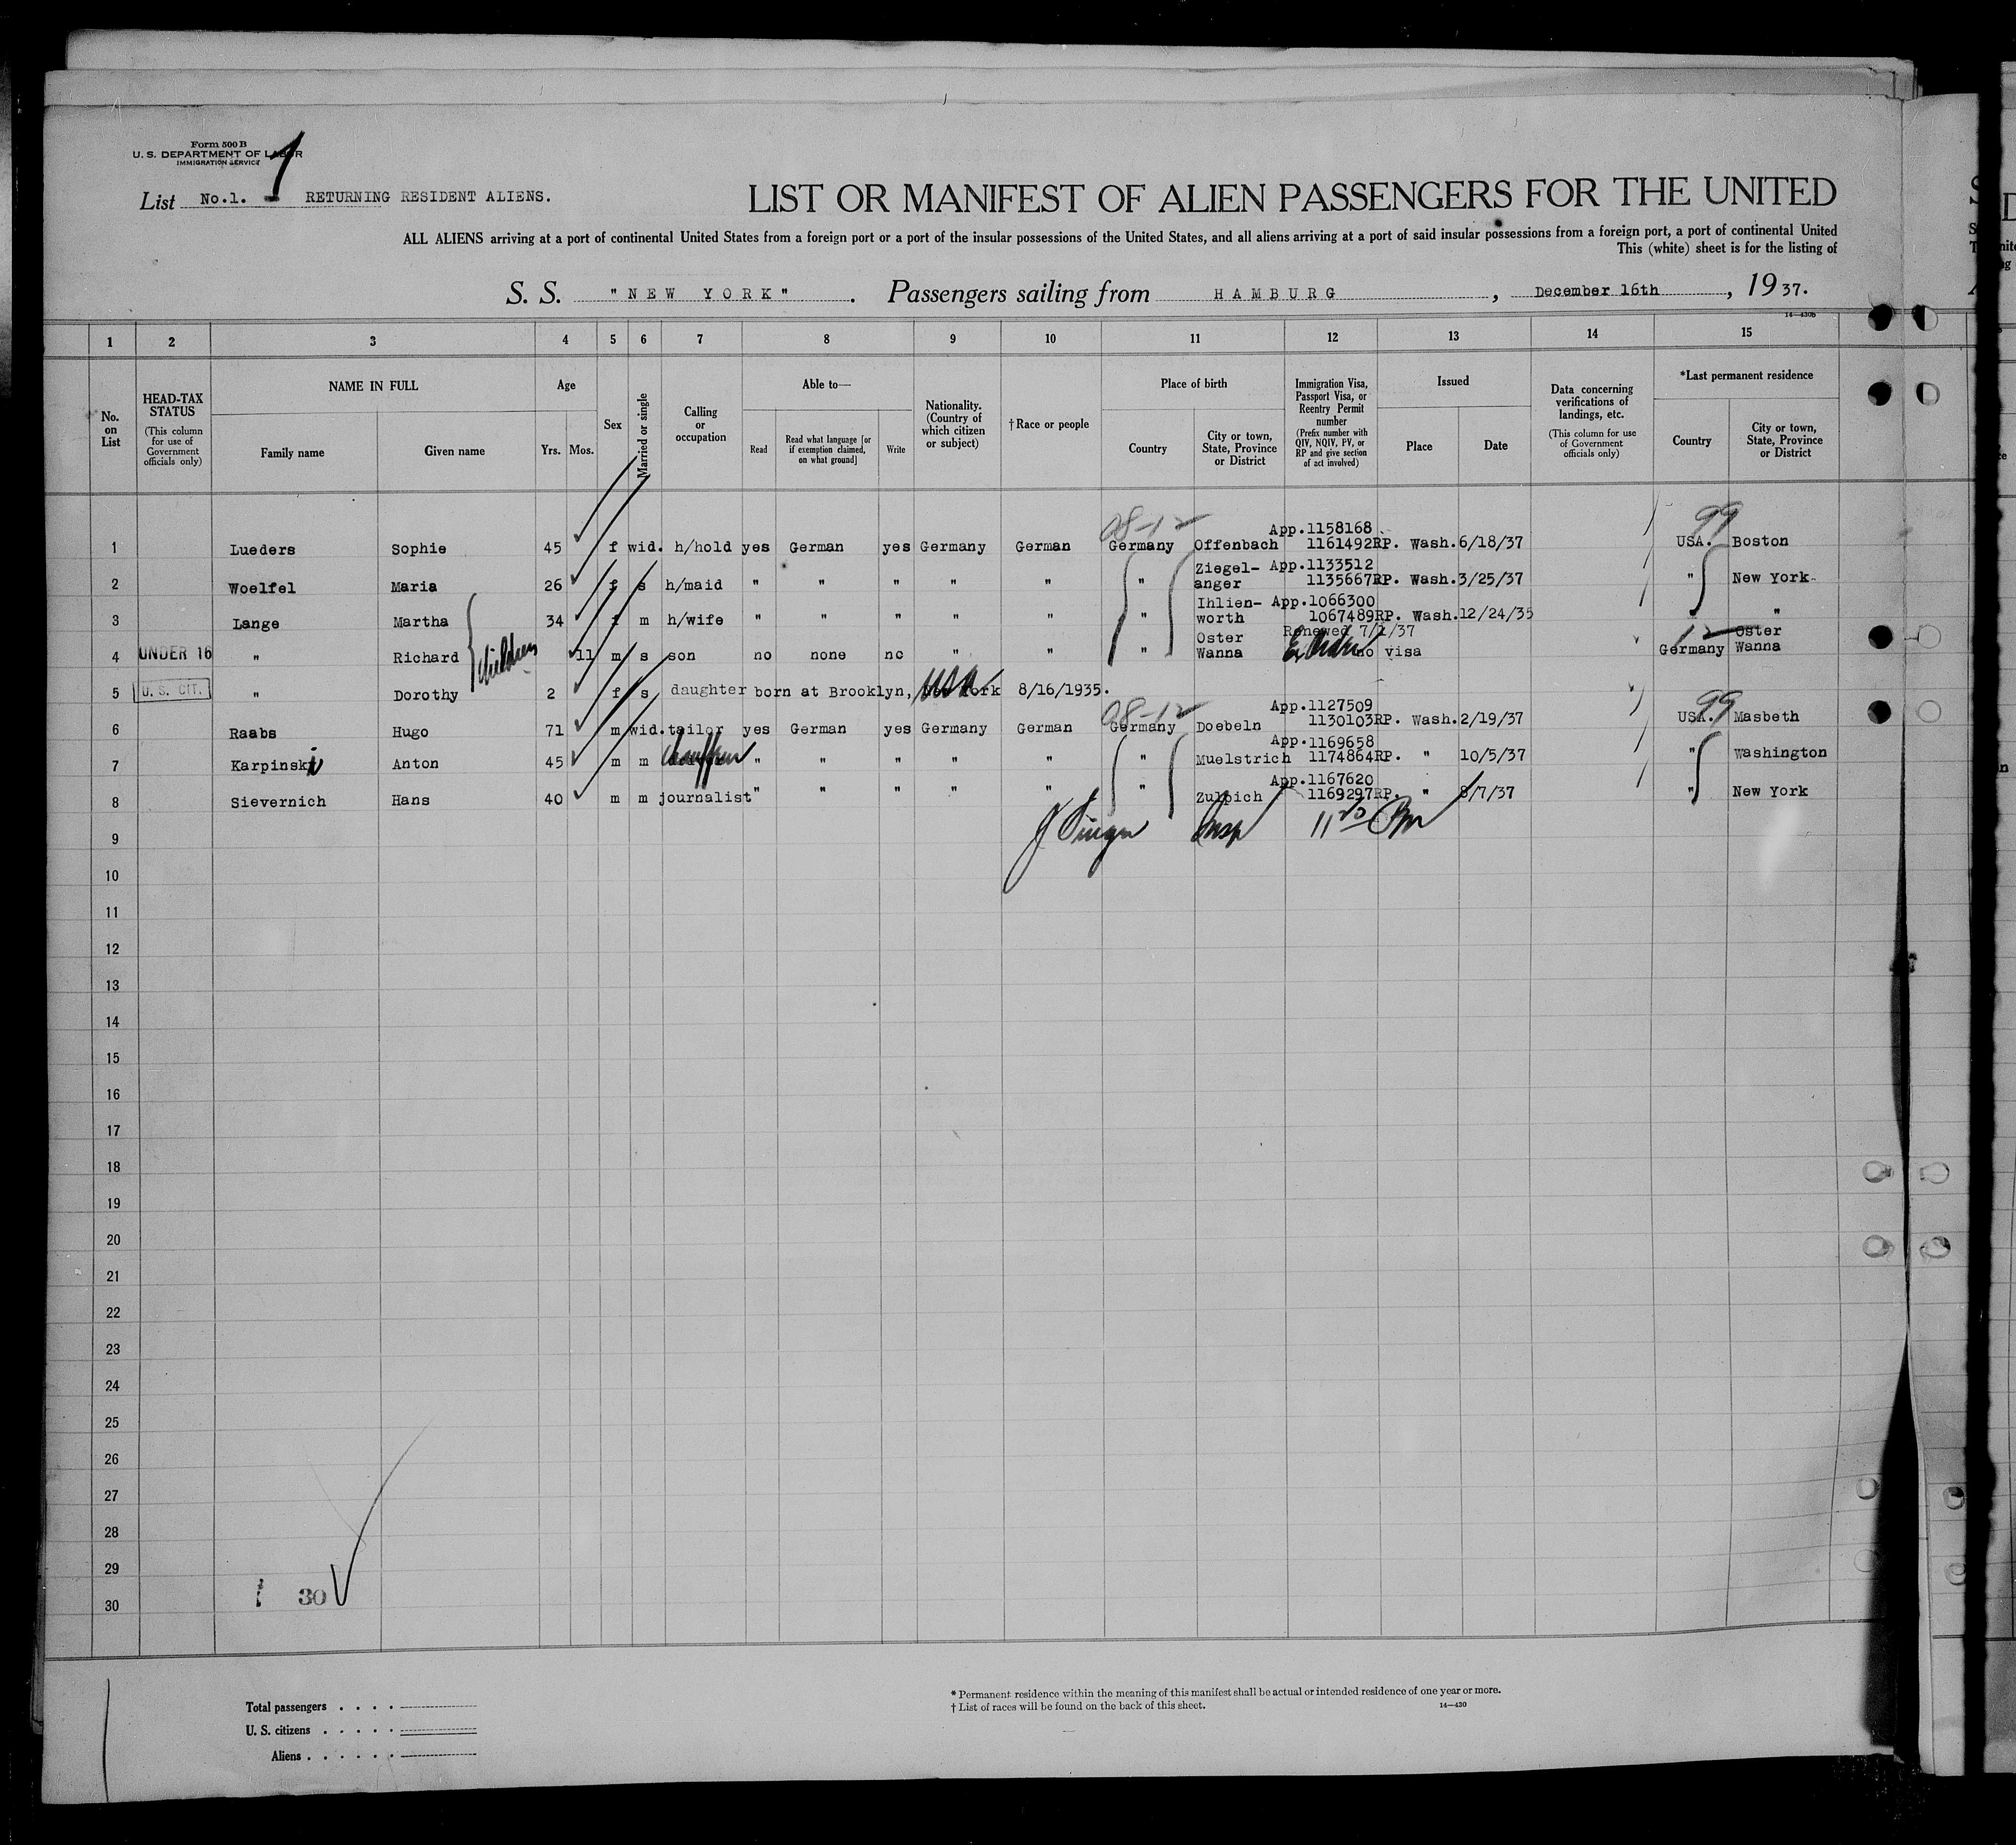 Form 500 B
U. S. DEPARTMENT OF LABOR
IMMIGRATION SERVICE
1
List No.1. RETURNING RESIDENT ALIENS.
LIST OR MANIFEST OF ALIEN PASSENGERS FOR THE UNITED
ALL ALIENS arriving at a port of continental United States from a foreign port or a port of the insular possessions of the United States, and all aliens arriving at a port of said insular possessions from a foreign port, a port of continental United
This (white) sheet is for the listing of
S. S. "NEW YORK". Passengers sailing from HAMBURG, December 16th, 1937.
14—430b
1 2 3 4 5 6 7 8 9 10 11 12 13 14 15
No. on List
HEAD-TAX STATUS (This column for use of Government officials only)
NAME IN FULL
Family name Given name
Age
Yrs. Mos.
Sex
Married or single
Calling or occupation
Able to—
Read Read what language [or if exemption claimed, on what ground] Write
Nationality. (Country of which citizen or subject)
†Race or people
Place of birth
Country City or town, State, Province or District
Immigration Visa, Passport Visa, or Reentry Permit number (Prefix number with QIV, NQIV, PV, or RP and give section of act involved)
Issued
Place Date
Data concerning verifications of landings, etc. (This column for use of Government officials only)
*Last permanent residence
Country City or town, State, Province or District
08-12 99
App.1158168
1 Lueders Sophie 45 f wid. h/hold yes German yes Germany German Germany Offenbach 1161492RP. Wash. 6/18/37 USA. Boston
Ziegel- App.1133512
2 Woelfel Maria 26 f s h/maid " " " " " " anger 1135667RP. Wash. 3/25/37 " New York
Ihlien- App.1066300
3 Lange Martha 34 f m h/wife " " " " " " worth 1067489RP. Wash. 12/24/35 "
Oster Renewed 7/1/37 12 Oster
4 UNDER 16 " Richard children 11 m s son no none no " " " Wanna no visa Germany Wanna
5 U. S. CIT. " Dorothy 2 f s daughter born at Brooklyn, New York USA 8/16/1935.
08-12 App.1127509 99
6 Raabs Hugo 71 m wid. tailor yes German yes Germany German Germany Doebeln 1130103RP. Wash. 2/19/37 USA. Masbeth
App.1169658
7 Karpinski Anton 45 m m chauffeur " " " " " " Muelstrich 1174864RP. " 10/5/37 " Washington
App.1167620
8 Sievernich Hans 40 m m journalist " " " " " " Zulpich 1169297RP. " 8/7/37 " New York
J Singer Insp
9
10
11
12
13
14
15
16
17
18
19
20
21
22
23
24
25
26
27
28
29
30
30
Total passengers
U. S. citizens
Aliens
* Permanent residence within the meaning of this manifest shall be actual or intended residence of one year or more.
† List of races will be found on the back of this sheet. 14—430